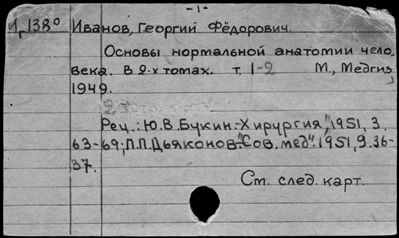 -1-
И,138° Иванов, Георгий Фёдорович.
Основы нормальной анатомии чело-
века. В 2-х томах. т. 1-2 М., Медгиз,
1949.
Рец.: Ю.В.Букин.-"Хирургия", 1951, 3,
63-69; П.П.Дьяконов-"Сов. мед". 1951, 9. 36-
37.
См. след. карт.